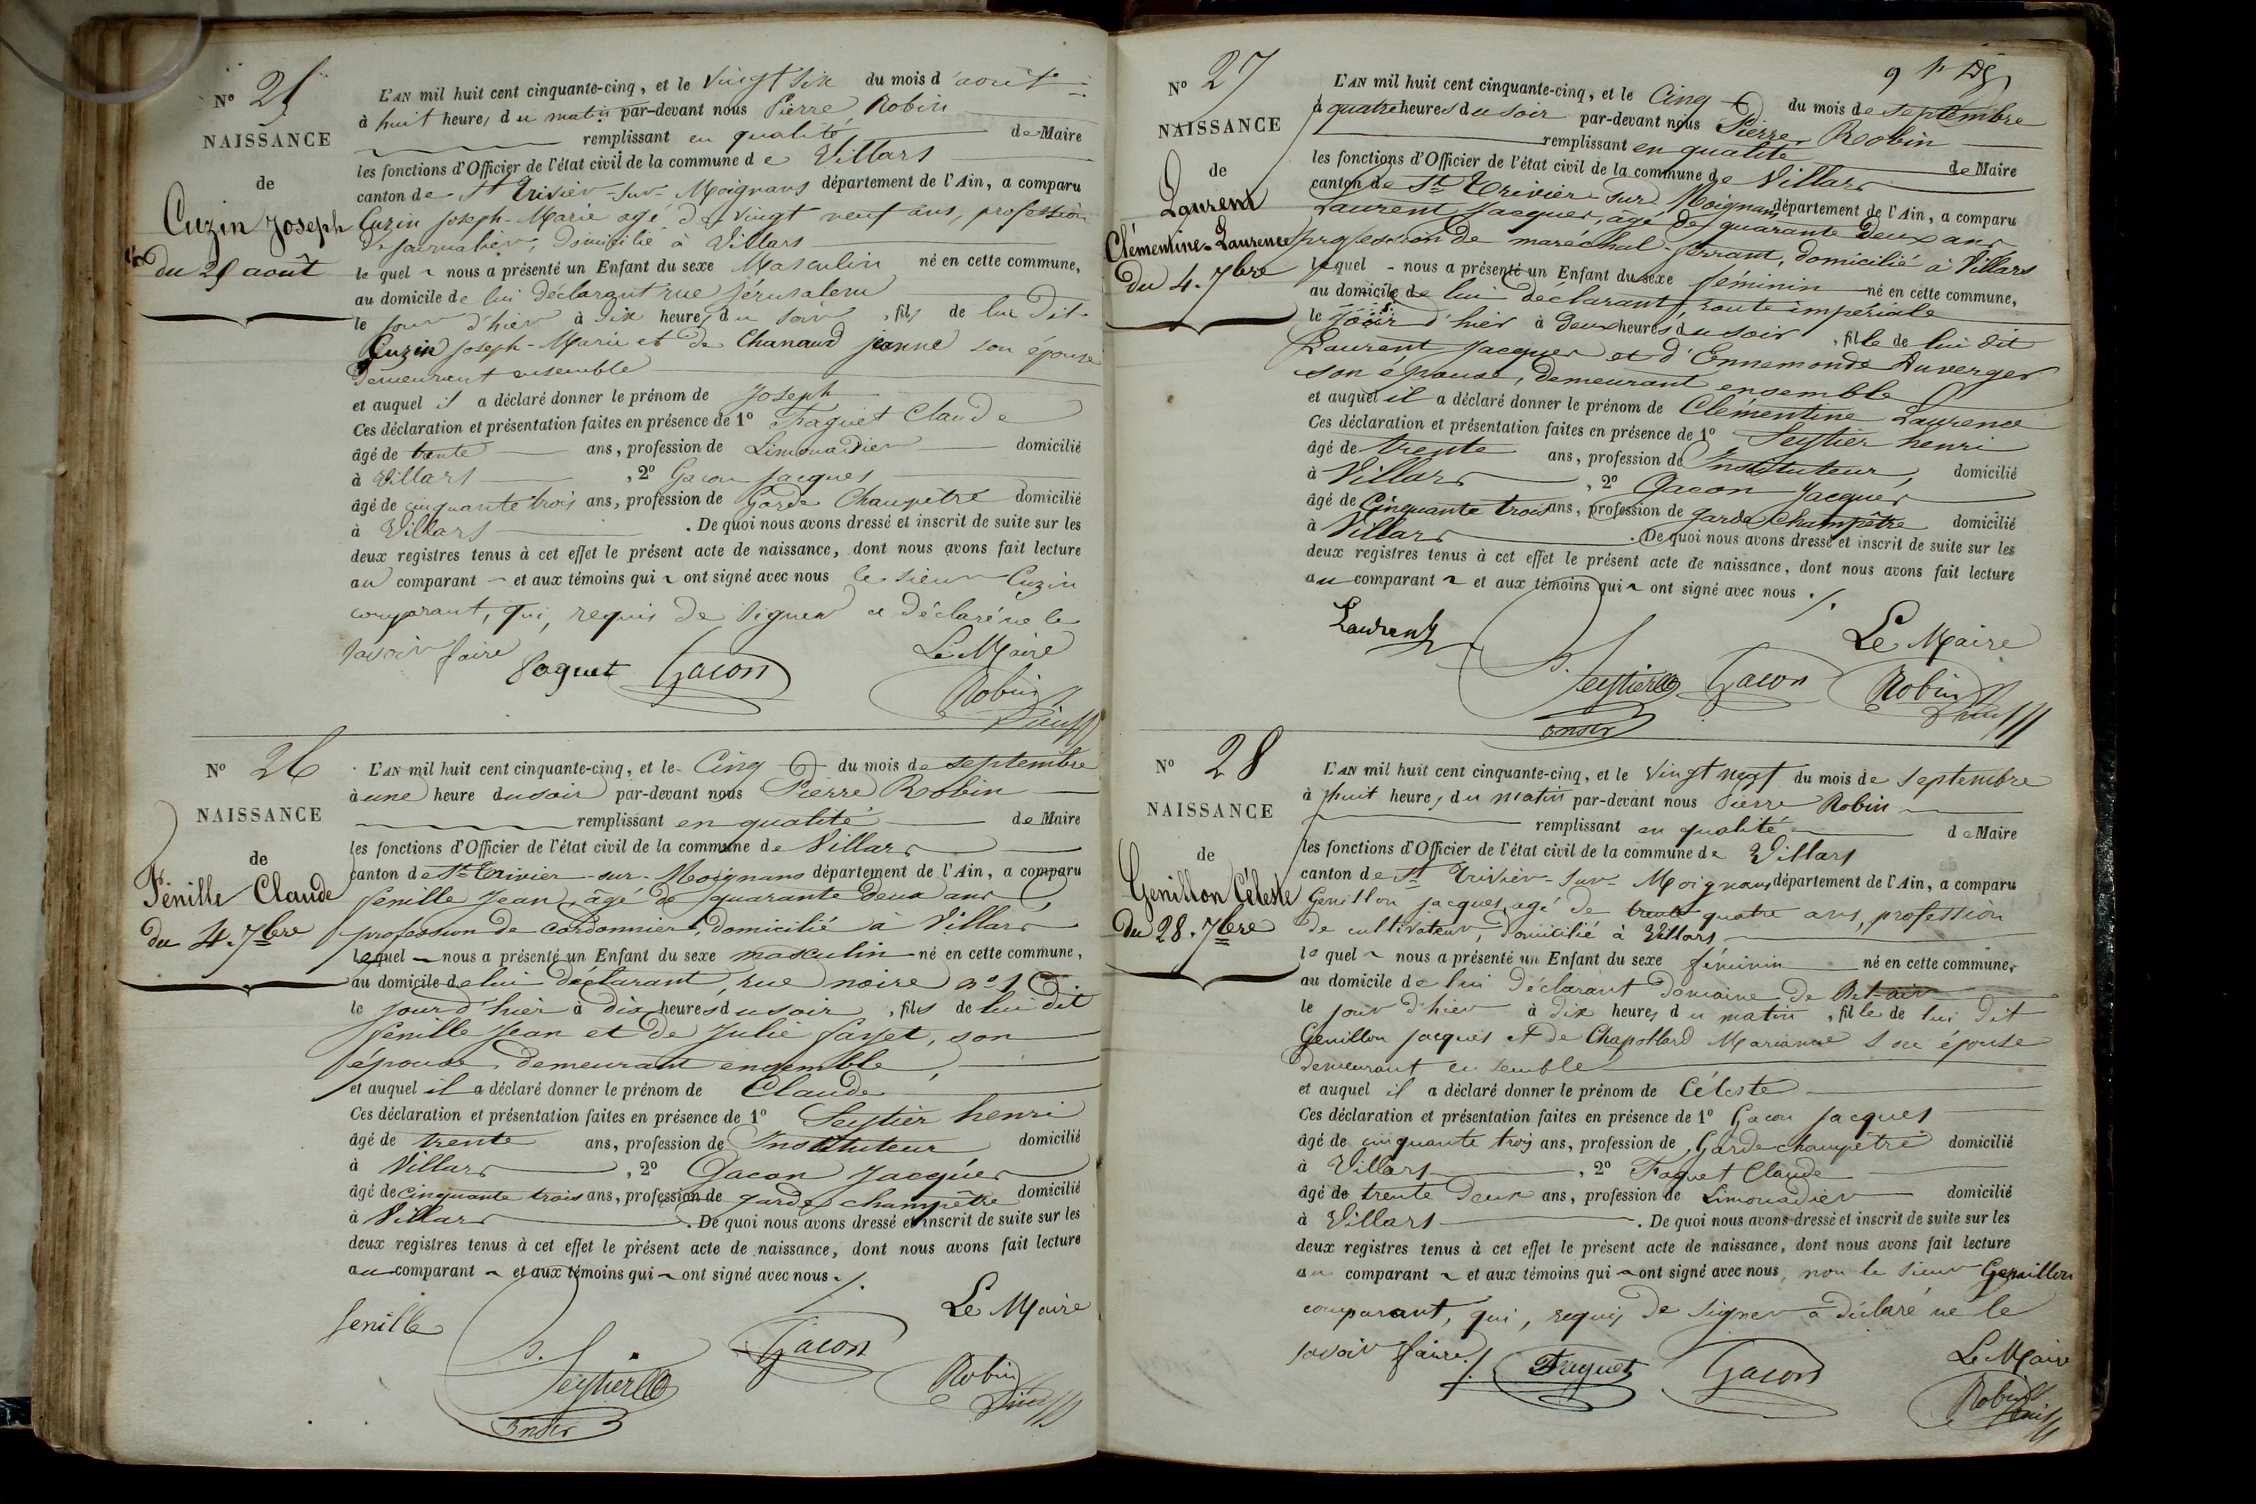 N° 25
NAISSANCE
de
Cuzin Joseph
du 25 août
L'AN mil huit cent cinquante-cinq, et le vingt six du mois d'août
à huit heures du matin par-devant nous Pierre Robin
remplissant en qualité de Maire
les fonctions d'Officier de l'état civil de la commune de Villars
canton de St Trivier-sur-Moignans département de l'Ain, a comparu
Cuzin Joseph-Marie agé de vingt neuf ans, profession
de journalier, domicilié à Villars
lequel nous a présenté un Enfant du sexe Masculin né en cette commune,
au domicile de lui déclarant rue Jérusalem
le jour d'hier à dix heures du soir, fils de lui dit
Cuzin Joseph-Marie et de Chanaud jeanne son épouse
demeurant ensemble
et auquel il a déclaré donner le prénom de Joseph
Ces déclaration et présentation faites en présence de 1° Faguet Claude
âgé de trente ans, profession de Limonadier domicilié
à Villars, 2° Gacon Jacques
âgé de cinquante trois ans, profession de Garde Champêtre domicilié
à Villars. De quoi nous avons dressé et inscrit de suite sur les
deux registres tenus à cet effet le présent acte de naissance, dont nous avons fait lecture
au comparant et aux témoins qui ont signé avec nous le sieur Cuzin
comparant, qui, requis de signer a déclaré ne le
savoir faire
Le Maire
Faguet Gacon
Robin
N° 26
NAISSANCE
de
Fénille Claude
du 4. 7bre
L'AN mil huit cent cinquante-cinq, et le Cinq du mois de septembre
à une heure du soir par-devant nous Pierre Robin
remplissant en qualité de Maire
les fonctions d'Officier de l'état civil de la commune de Villars
canton de St Trivier-sur-Moignans département de l'Ain, a comparu
fenille Jean, âgé de quarante deux ans
profession de cordonnier, domicilié à Villars
lequel nous a présenté un Enfant du sexe masculin né en cette commune,
au domicile de lui déclarant, rue noire n° 1
le jour d'hier à dix heures du soir, fils de lui dit
fenille Jean et de Julie farjet, son
épouse demeurant ensemble
et auquel il a déclaré donner le prénom de Claude
Ces déclaration et présentation faites en présence de 1° Seytier henri
âgé de trente ans, profession de Instituteur domicilié
à Villars, 2° Gacon Jacques
âgé de cinquante trois ans, profession de garde champêtre domicilié
à Villars. De quoi nous avons dressé et inscrit de suite sur les
deux registres tenus à cet effet le présent acte de naissance, dont nous avons fait lecture
au comparant et aux témoins qui ont signé avec nous./.
Le Maire
fenille
Seytier Gacon
Robin
N° 27
NAISSANCE
de
Laurent
Clémentine-Laurence
du 4. 7bre
L'AN mil huit cent cinquante-cinq, et le Cinq du mois de septembre
à quatre heures du soir par-devant nous Pierre Robin
remplissant en qualité de Maire
les fonctions d'Officier de l'état civil de la commune de Villars
canton de St Trivier sur Moignans département de l'Ain, a comparu
Laurent Jacques, âgé de quarante deux ans
profession de maréchal-ferrant, domicilié à Villars
lequel nous a présenté un Enfant du sexe féminin né en cette commune,
au domicile de lui déclarant, route impériale
le jour d'hier à deux heures du soir, fille de lui dit
Laurent Jacques et d'Ennemonde Auverger
son épouse, demeurant ensemble
et auquel il a déclaré donner le prénom de Clémentine Laurence
Ces déclaration et présentation faites en présence de 1° Seytier henri
âgé de trente ans, profession de Instituteur, domicilié
à Villars, 2° Gacon Jacques
âgé de Cinquante trois ans, profession de garde champêtre domicilié
à Villars. De quoi nous avons dressé et inscrit de suite sur les
deux registres tenus à cet effet le présent acte de naissance, dont nous avons fait lecture
au comparant et aux témoins qui ont signé avec nous./.
Laurent
Le Maire
Seytier Gacon Robin
N° 28
NAISSANCE
de
Genillon Céleste
du 28. 7bre
L'AN mil huit cent cinquante-cinq, et le vingt neuf du mois de septembre
à huit heures du matin par-devant nous Pierre Robin
remplissant en qualité de Maire
les fonctions d'Officier de l'état civil de la commune de Villars
canton de St Trivier-sur-Moignans département de l'Ain, a comparu
Genillon jacques, agé de trente quatre ans, profession
de cultivateur, domicilié à Villars
lequel nous a présenté un Enfant du sexe féminin né en cette commune,
au domicile de lui déclarant domaine de Bel-air
le jour d'hier à dix heures du matin, fille de lui dit
Genillon jacques et de Chapolard Marianne son épouse
demeurant ensemble
et auquel il a déclaré donner le prénom de Céleste
Ces déclaration et présentation faites en présence de 1° Gacon Jacques
âgé de cinquante trois ans, profession de Garde champêtre domicilié
à Villars, 2° Faguet Claude
âgé de trente deux ans, profession de Limonadier domicilié
à Villars. De quoi nous avons dressé et inscrit de suite sur les
deux registres tenus à cet effet le présent acte de naissance, dont nous avons fait lecture
au comparant et aux témoins qui ont signé avec nous, non le sieur Genillon
comparant, qui, requis de signer a déclaré ne le
savoir faire./.
Le Maire
Faguet Gacon
Robin